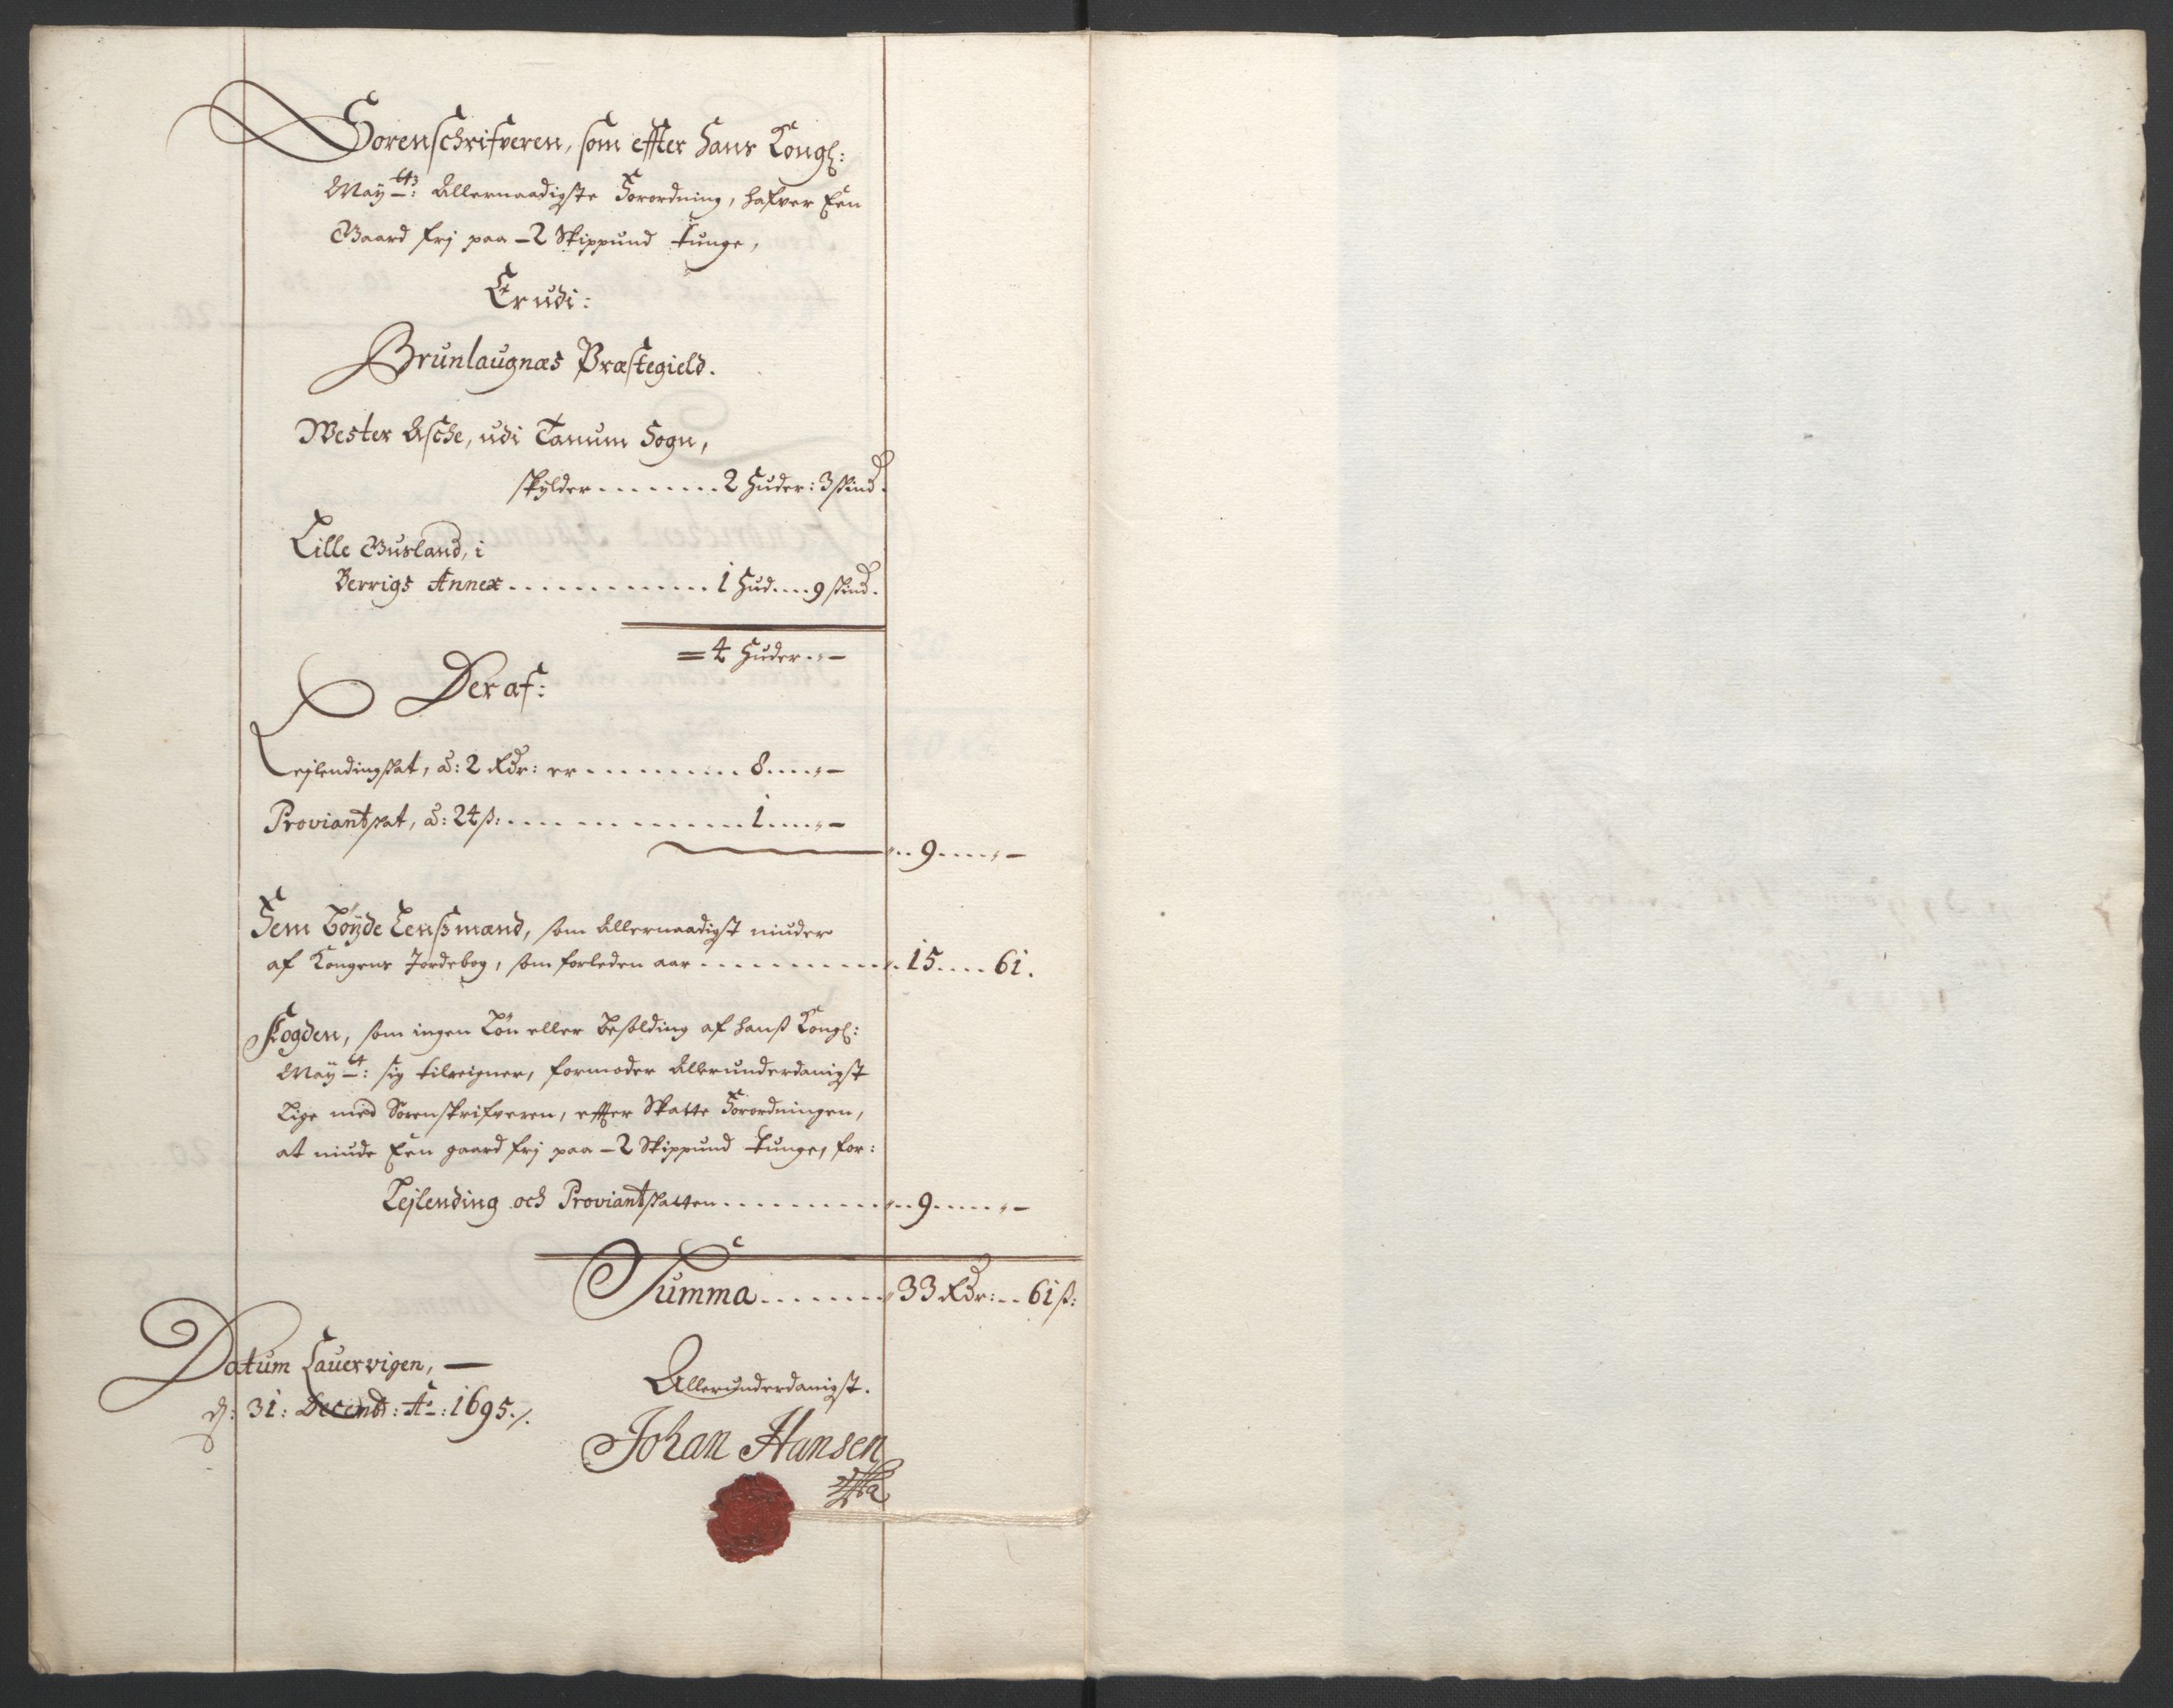 Sorenschrifveren, som effter Hans Kongl:
May.tz: Allernaadigste Forordning, hafver Een
Gaard frj paa - 2 Skippund tunge,
Er udi:
Brunlaugnæs Præstegield.
Wester Asche, udi Tanum Sogn,
skylder . . . . . . . 2 Huder: 3 skind.
Lille Gusland, i
Berrigs Annex . . . . . . . . . . . . 1 Hud . . . . 9 skind.
= 4 Huder . „ -
Der af:
Lejlendingskat, à: 2 Rdr: er . . . . . . . . 8 . . . . „ -
Proviantskat, à: 24 ß: . . . . . . . . . . . 1 . . . . „ -
„ . . 9 . . . . „ -
Fem Bøyde Lenßmænd, som Allernaadigst niuder
af Kongens Jordebog, som forleden aar . . . . . . . . . . 15 . . . . 61.
Fogden, som ingen Løn eller Besolding af Hanß Kongl:
May.t: sig tilreigner, formoder Allerunderdanigst
Lige med Sorenskrifveren, effter Skatte Forordningen,
at niude Een gaard frj paa - 2 Skippund tunge, for:
Lejlending och Proviantskatten . . . . . . . . . „ . . 9 . . . . . „ -
Summa . . . . . . . „ 33 Rdr: . . 61 ß:
Datum Lauervigen, -
d: 31: Decemb: Ao: 1695 ./.
Allerunderdanigst.
Johan Hansen